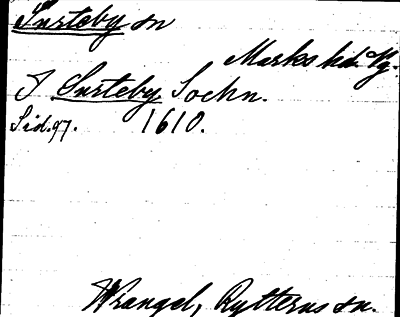 Surteby sn
Marks hd. Vg.
I Surteby Sochn.
Sid. 97. 1610.
Wrangel, Rytterns sn.